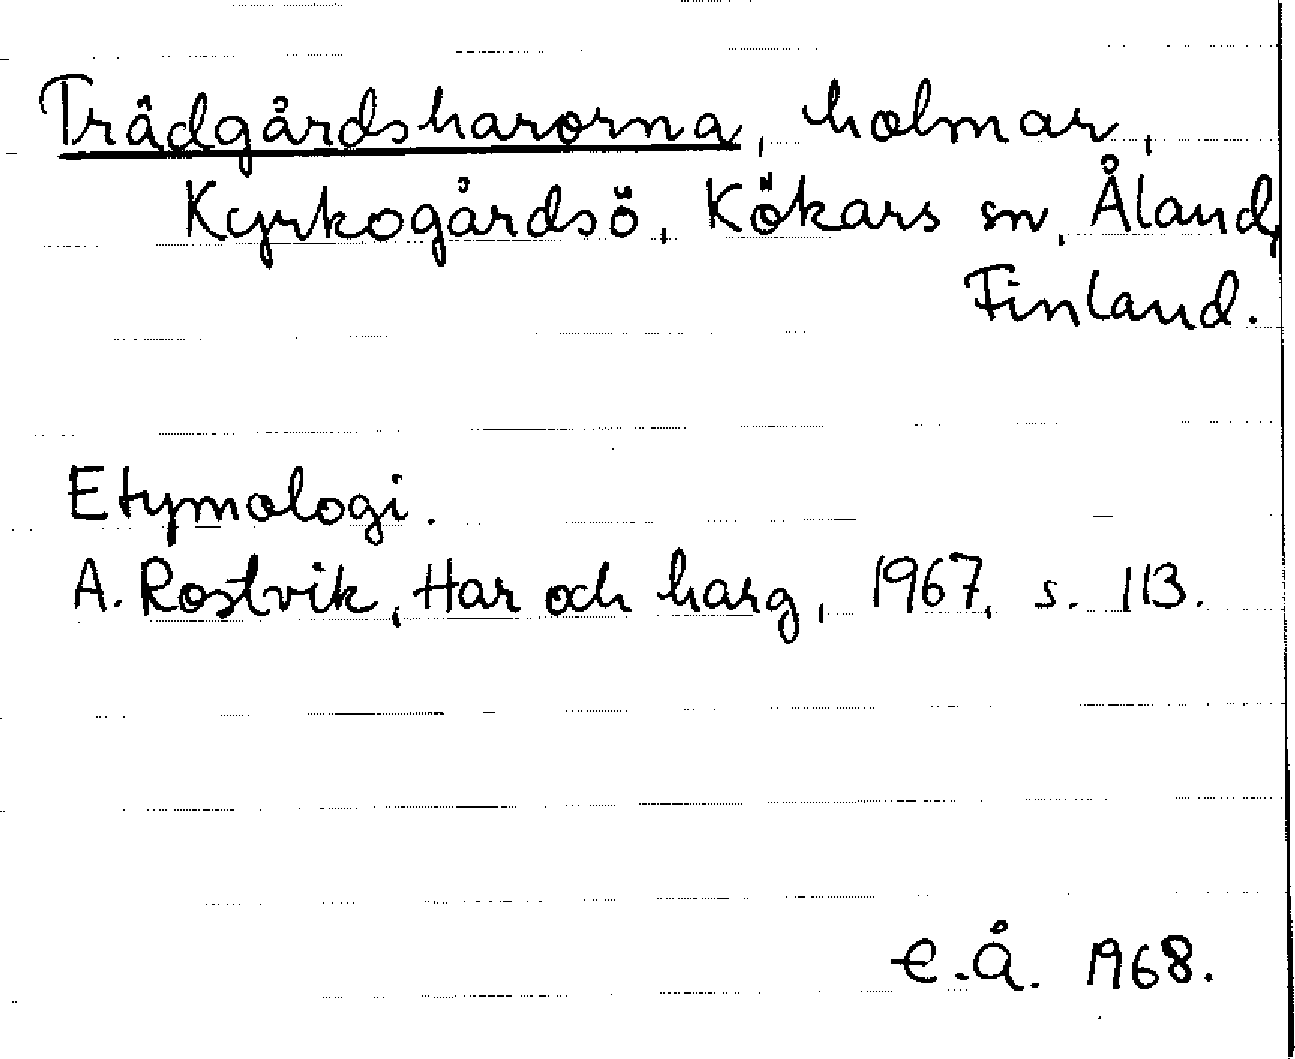 Trådgårdsharorna, holmar,
Kyrkogårdsö, Kökars sn, Åland,
Finland.
Etymologi.
A. Rostvik, Har och harg, 1967, s. 113.
E.Å. 1968.